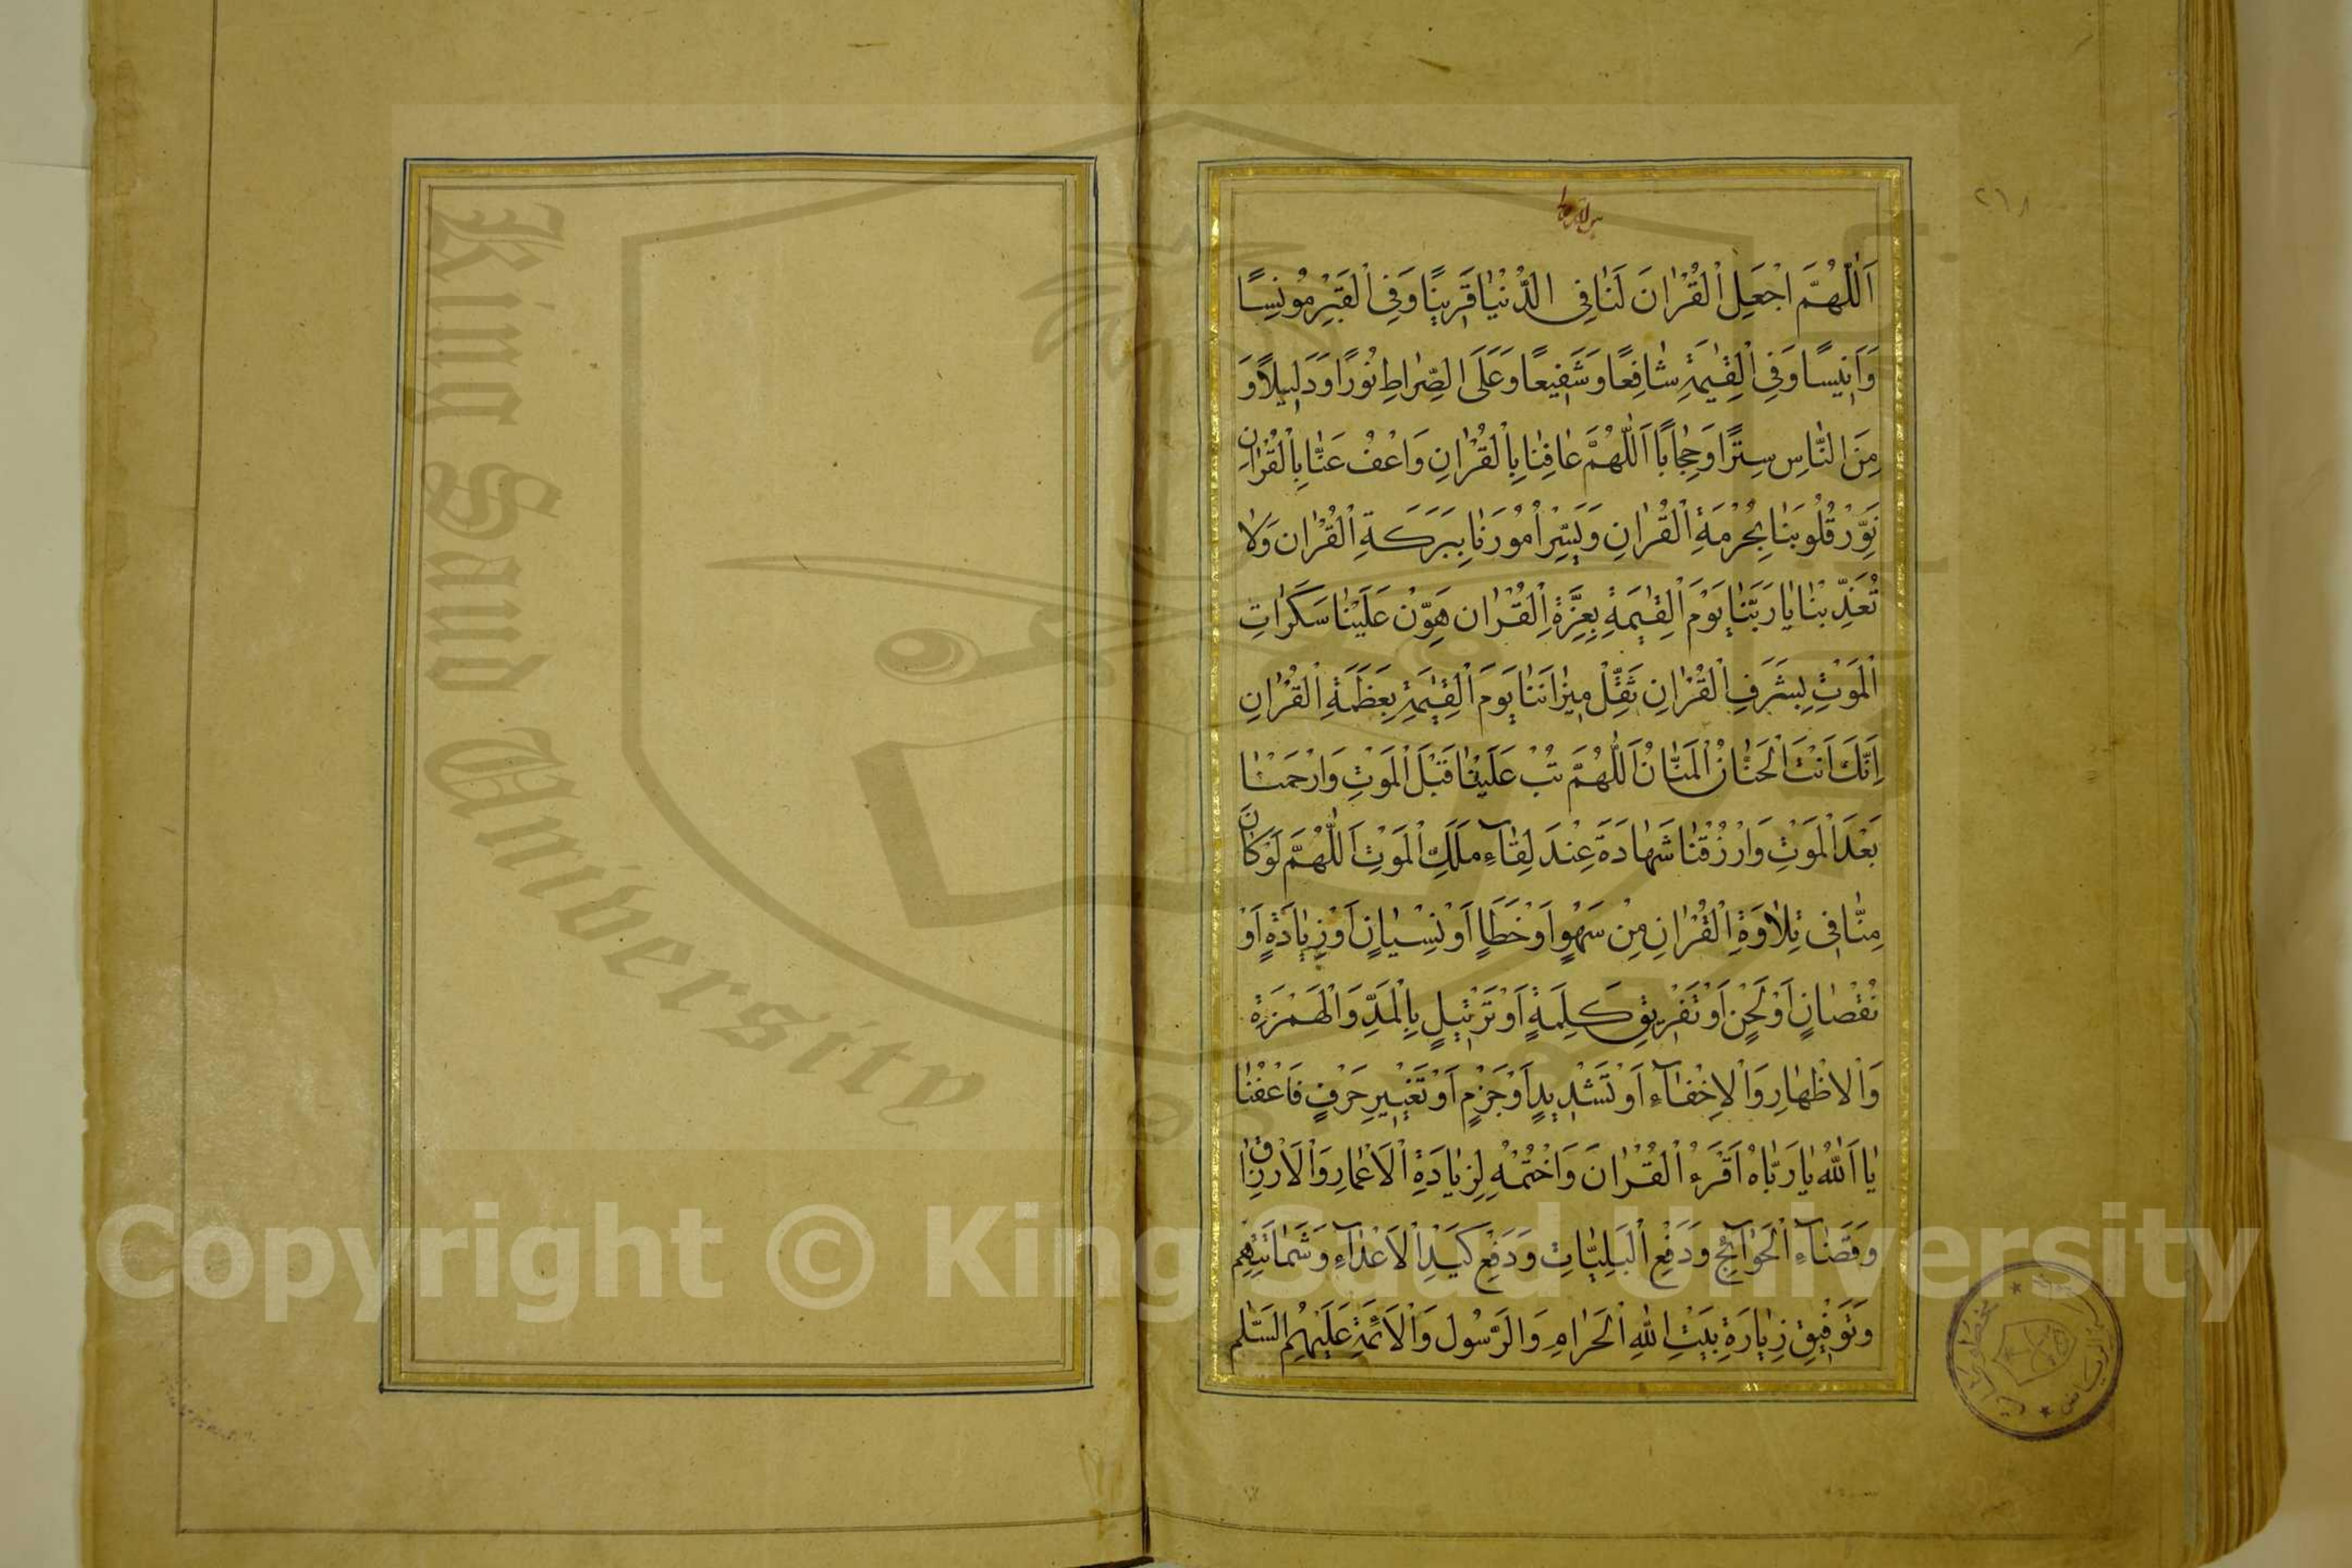 ٢٦٨
اَللّٰهُمَّ اجْعَلِ الْقُرْاٰنَ لَنٰا فِى الدُّنْيٰا قَرِينًا وَفِى الْقَبْرِ مُونِسًا
وَاَنِيسًا وَفِى الْقِيٰمَةِ شٰافِعًا وَشَفِيعًا وَعَلَى الصِّرٰاطِ نُورًا وَدَلِيلًا وَ
مِنَ النّٰاسِ سِتْرًا وَحِجٰابًا اَللّٰهُمَّ عٰافِنٰا بِالْقُرْاٰنِ وَاعْفُ عَنّٰا بِالْقُرْاٰنِ
نَوِّرْ قُلُوبَنٰا بِحُرْمَةِ الْقُرْاٰنِ وَيَسِّرْ اُمُورَنٰا بِبَرَكَةِ الْقُرْاٰن وَلٰا
تُعَذِّبْنٰا يٰا رَبَّنٰا يَوْمَ الْقِيٰمَةِ بِعِزَّةِ الْقُرْاٰن هَوِّنْ عَلَيْنٰا سَكَرٰاتِ
الْمَوْتِ بِشَرَفِ الْقُرْاٰنِ ثَقِّلْ مِيزٰانَنٰا يَوْمَ الْقِيٰمَةِ بِعَظَمَةِ الْقُرْاٰنِ
اِنَّكَ اَنْتَ الْحَنّٰانُ الْمَنّٰانُ اَللّٰهُمَّ تُبْ عَلَيْنٰا قَبْلَ الْمَوْتِ وَارْحَمْنٰا
بَعْدَ الْمَوْتِ وَارْزُقْنٰا شَهٰادَةً عِنْدَ لِقٰآءِ مَلَكِ الْمَوْتِ اَللّٰهُمَّ لَوْ كٰانَ
مِنّٰا فِى تِلٰاوَةِ الْقُرْاٰنِ مِنْ سَهْوٍ اَوْ خَطَاٍ اَوْ نِسْيٰانٍ اَوْ زِيٰادَةٍ اَوْ
نُقْصٰانٍ اَوْ لَحْنٍ اَوْ تَفْرِيقِ كَلِمَةٍ اَوْ تَرْتِيلٍ بِالْمَدِّ وَالْهَمْزَةِ
وَالْاظْهٰارِ وَالْاِخْفٰآءِ اَوْ تَشْدِيدٍ اَوْ جَزْمٍ اَوْ تَغْيِيرِ حَرْفٍ فَاعْفُنٰا
يٰا اَللّٰهُ يٰا رَبّٰاهُ اَقْرَءُ الْقُرْاٰنَ وَاخْتُمْهُ لِزِيٰادَةِ الْاَعْمٰارِ وَالْاَرْزٰاقِ
وَقَضٰآءِ الْحَوٰآئِجِ وَدَفْعِ الْبَلِيّٰاتِ وَدَفْعِ كَيْدِ الْاَعْدٰآءِ وَشَمٰاتَتِهِمْ
وَتَوْفِيقِ زِيٰارَةِ بَيْتِ اللّٰهِ الْحَرٰامِ وَالرَّسُولِ وَالْاَئِمَّةِ عَلَيْهِمُ السَّلٰم
King Saud University
Copyright © King Saud University